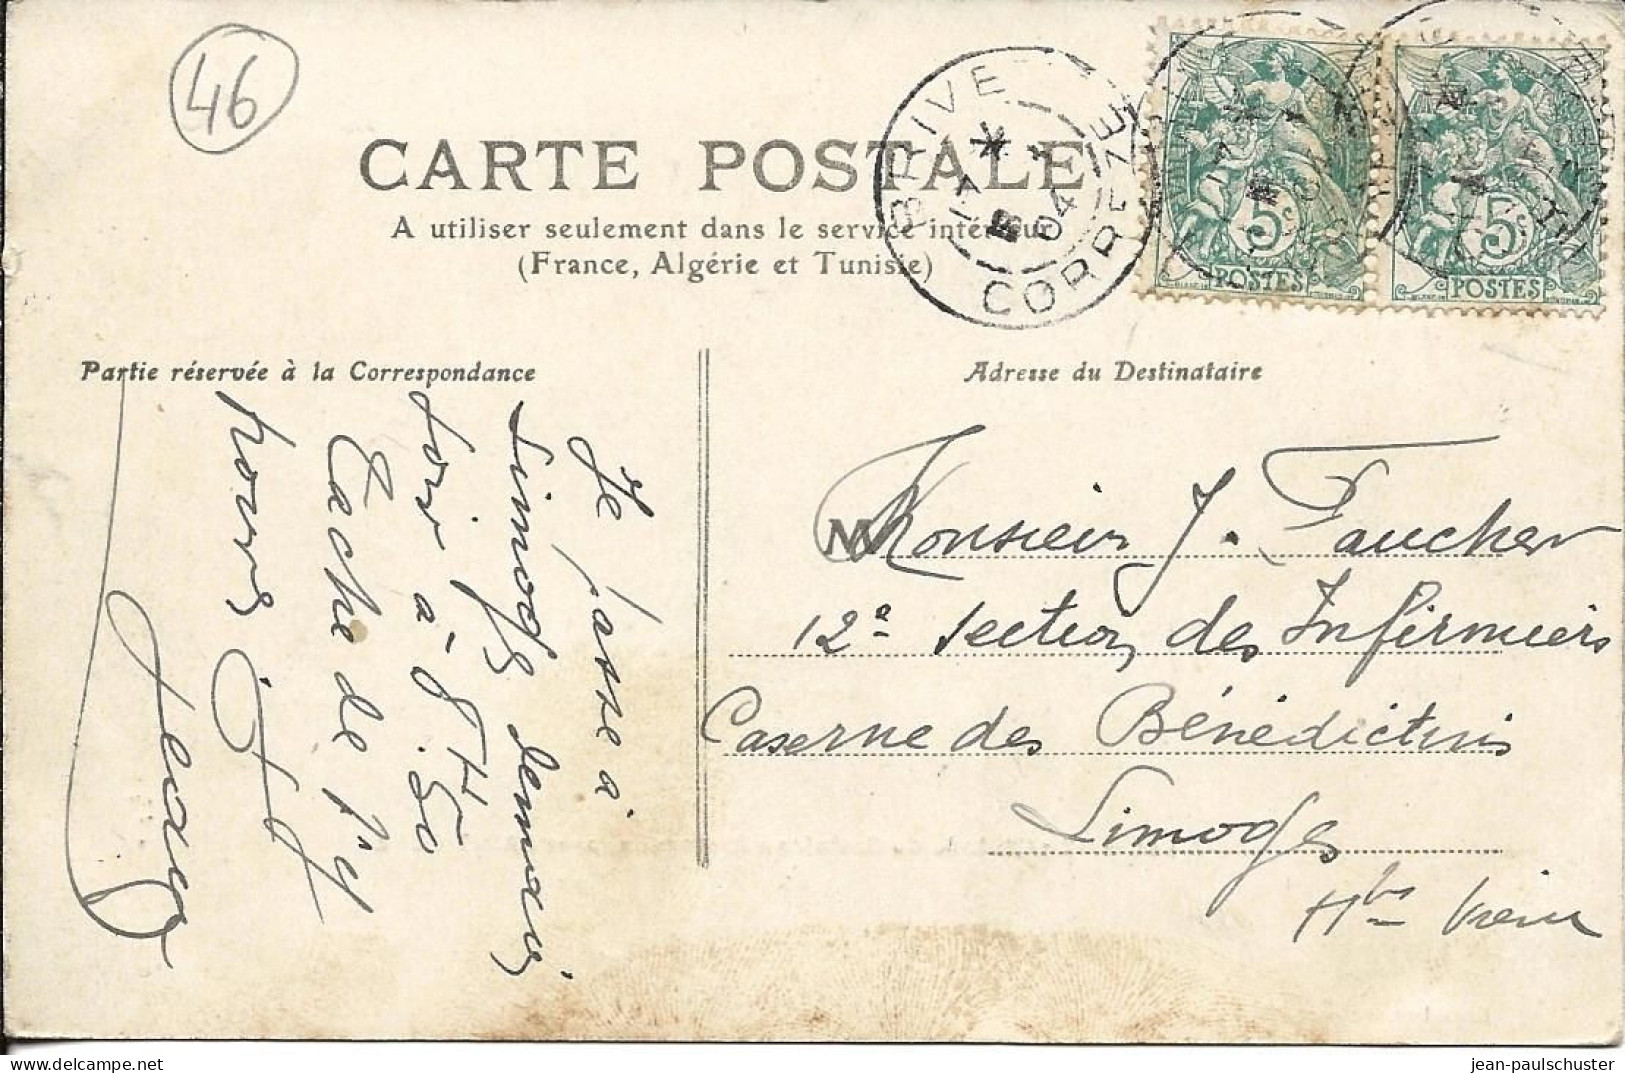 46
CARTE POSTALE
A utiliser seulement dans le service intérieur
(France, Algérie et Tunisie)
BRIVE
17
04
CORREZE
5c
POSTES
5c
POSTES
Partie réservée à la Correspondance
Adresse du Destinataire
Je passe à
Limoges demain
soir à 8h 50
Tache de t'y
trouver
Jean
M
Monsieur J. Faucher
12e Section des Infirmiers
Caserne des Bénédictins
Limoges
Hte Vienne
jean-paulschuster